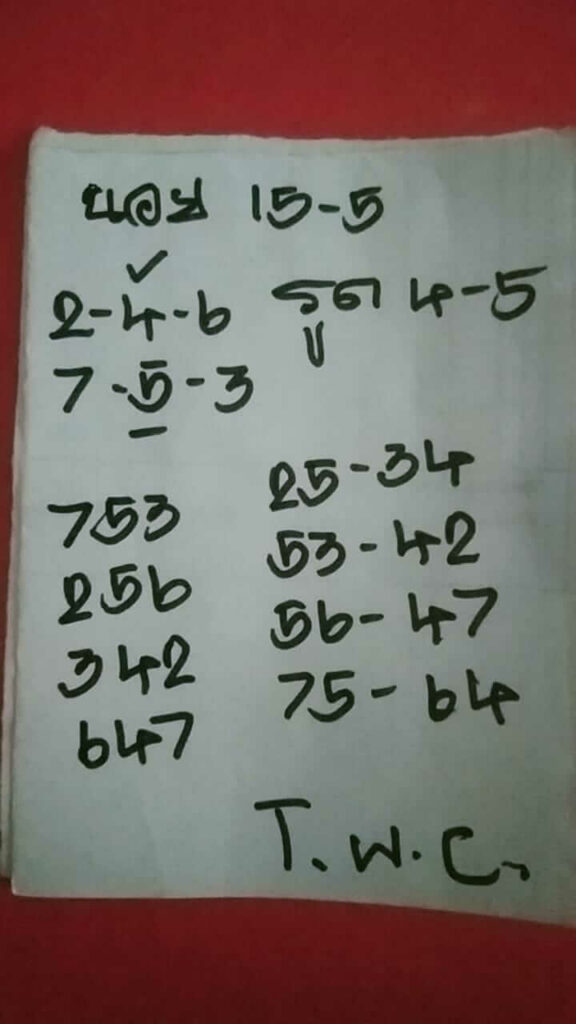 ฮานอย 15-5
2-4-6 รูด 4-5
7-5-3
753 25-34
256 53-42
342 56-47
647 75-64
T.W.C.